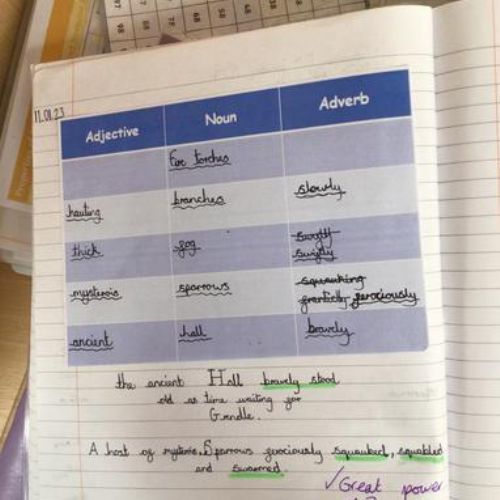 11.01.23
Adjective Noun Adverb
Fire torches
hauting branches slowly
thick fog swiftly
swiftly
mysterois sparrows squeaking
frantically feroriously
ancient hall bravely
the ancient Hall bravely stood
old as time waiting for
Grendle.
A host of mysterois Sparrows feroriously squauked, squabled
and swarmed.
✓Great power